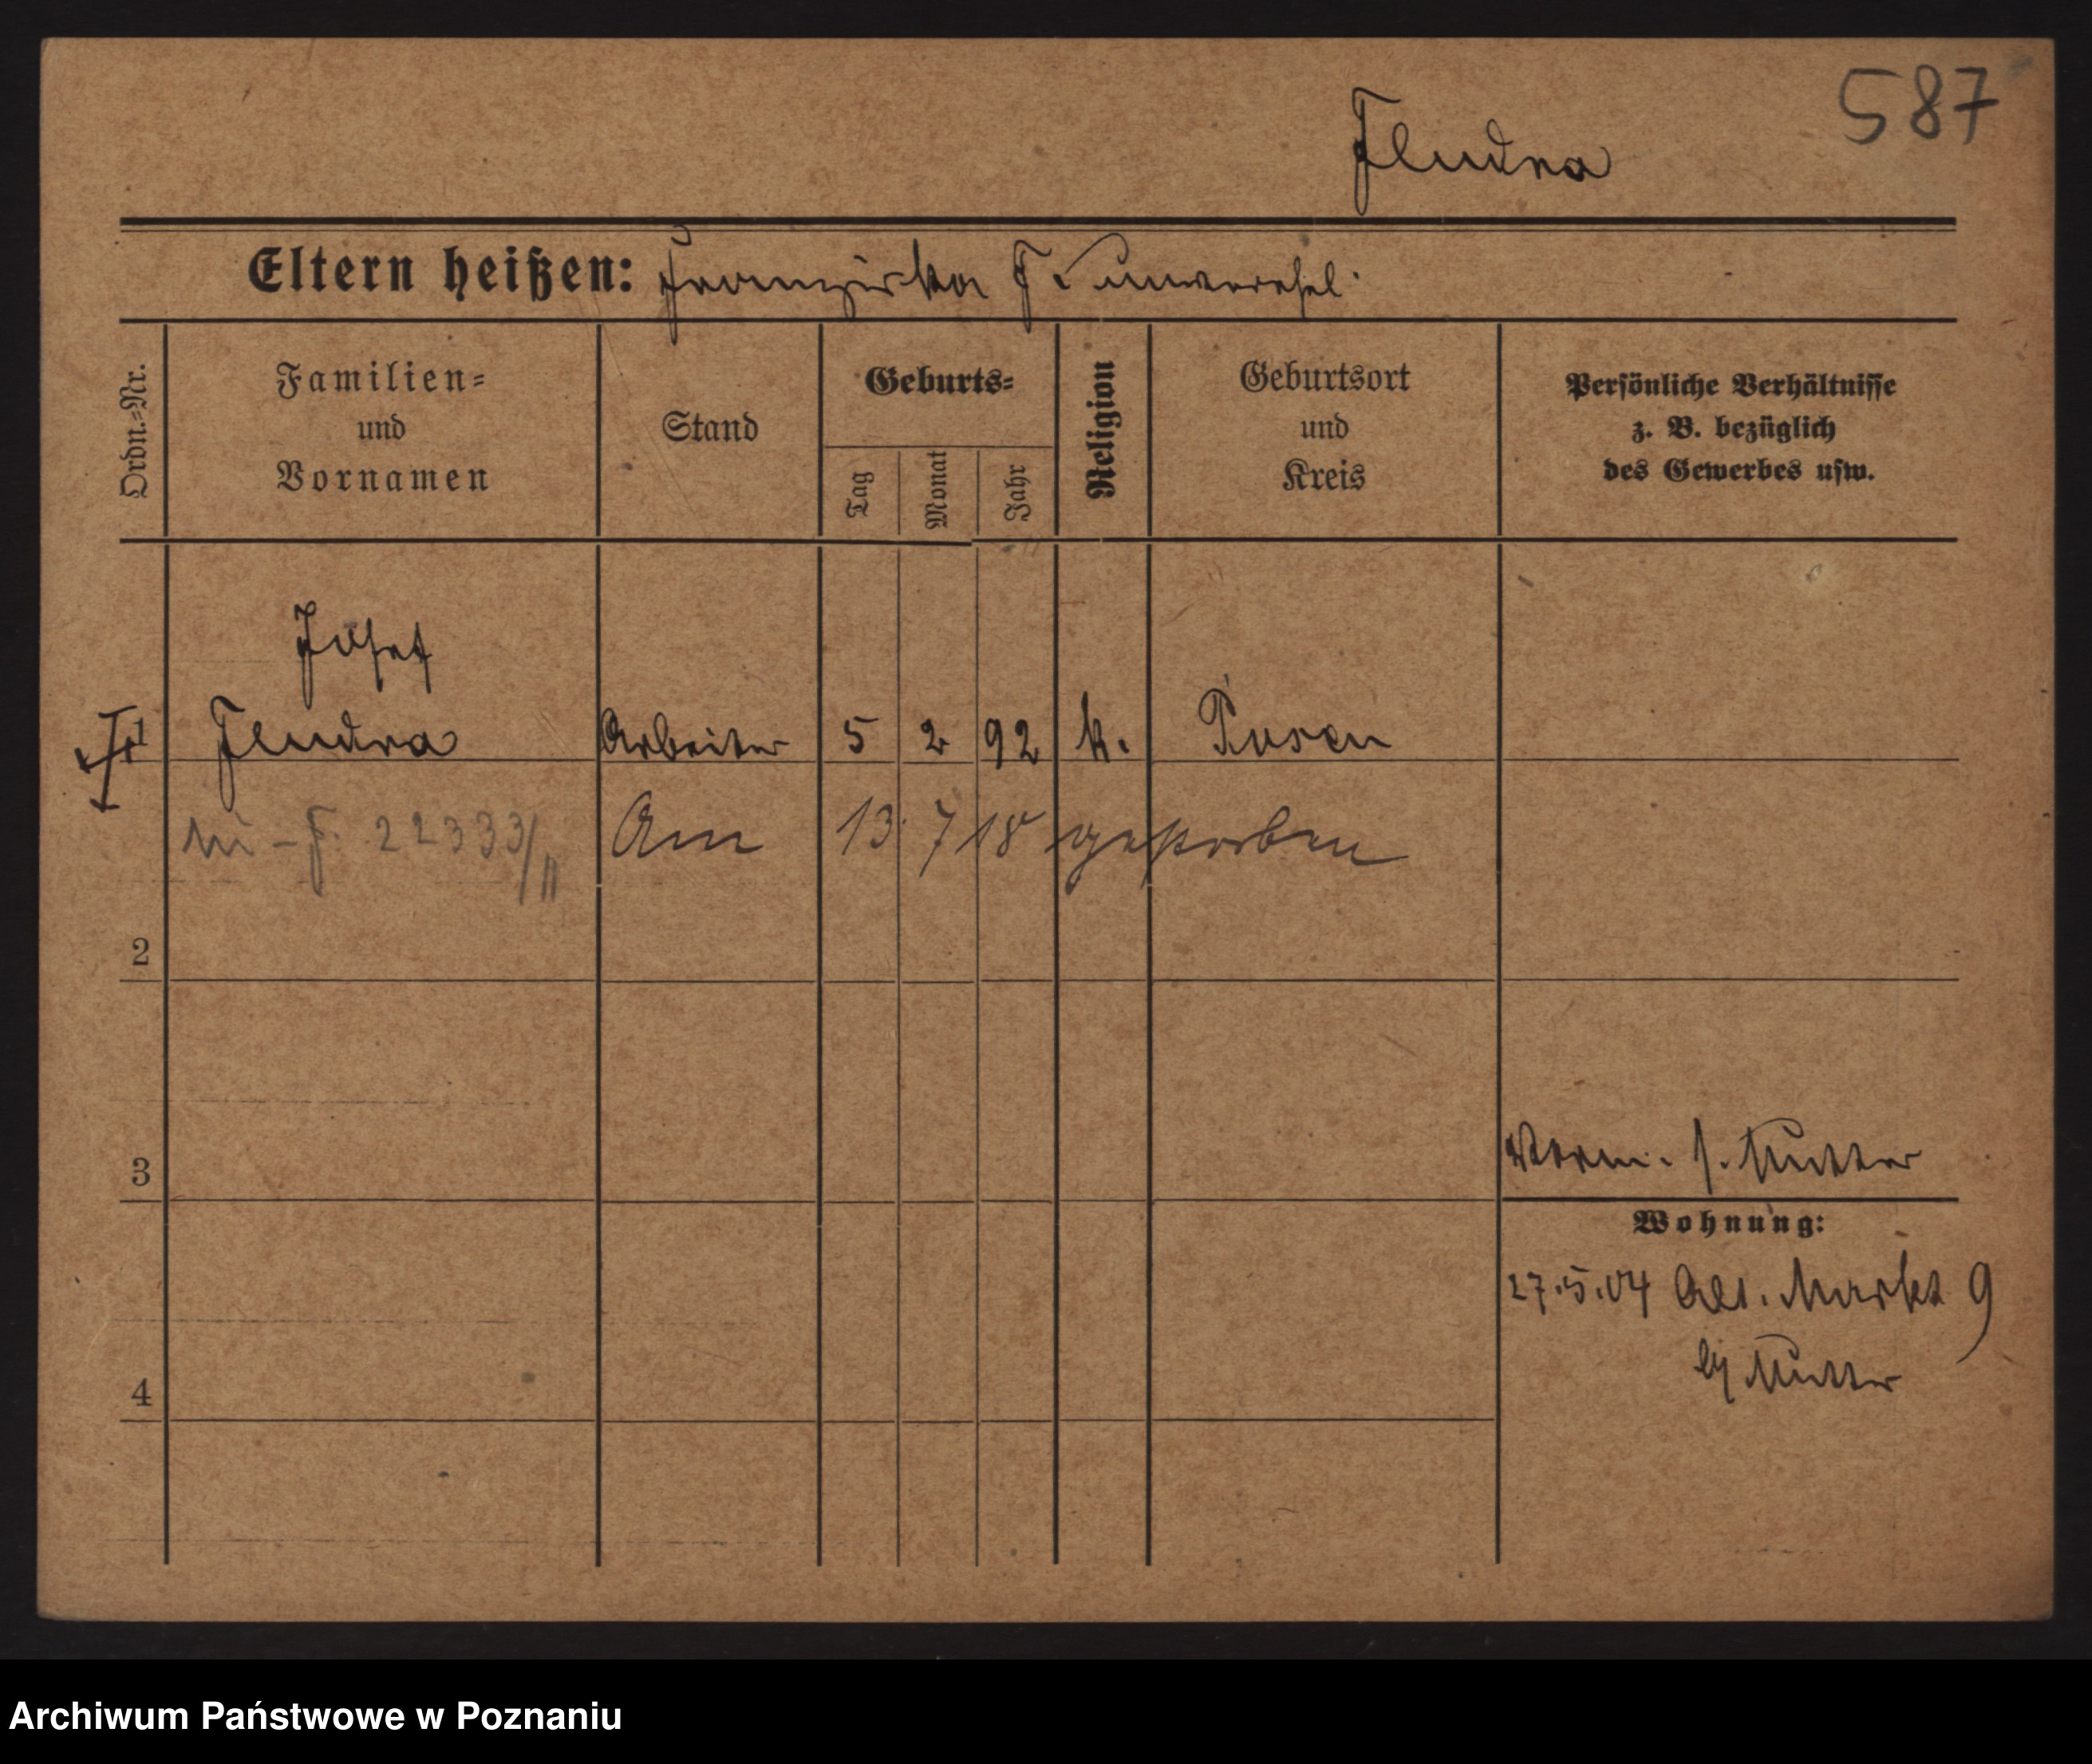 587
Fludra
Eltern heißen: Franziska F.
Ordn.=Nr.
Familien=
und
Vornamen
Stand
Geburts=
Tag
Monat
Jahr
Religion
Geburtsort
und
Kreis
Persönliche Verhältnisse
z. B. bezüglich
des Gewerbes usw.
Josef
1 Fludra Arbeiter 5 2 92 k. Posen
22333/II Am 13. 7 18 gestorben
2
3
Verm. s. Mutter
Wohnung:
27.5.04 Alt. Markt 9
4
b/ Mutter
Archiwum Państwowe w Poznaniu